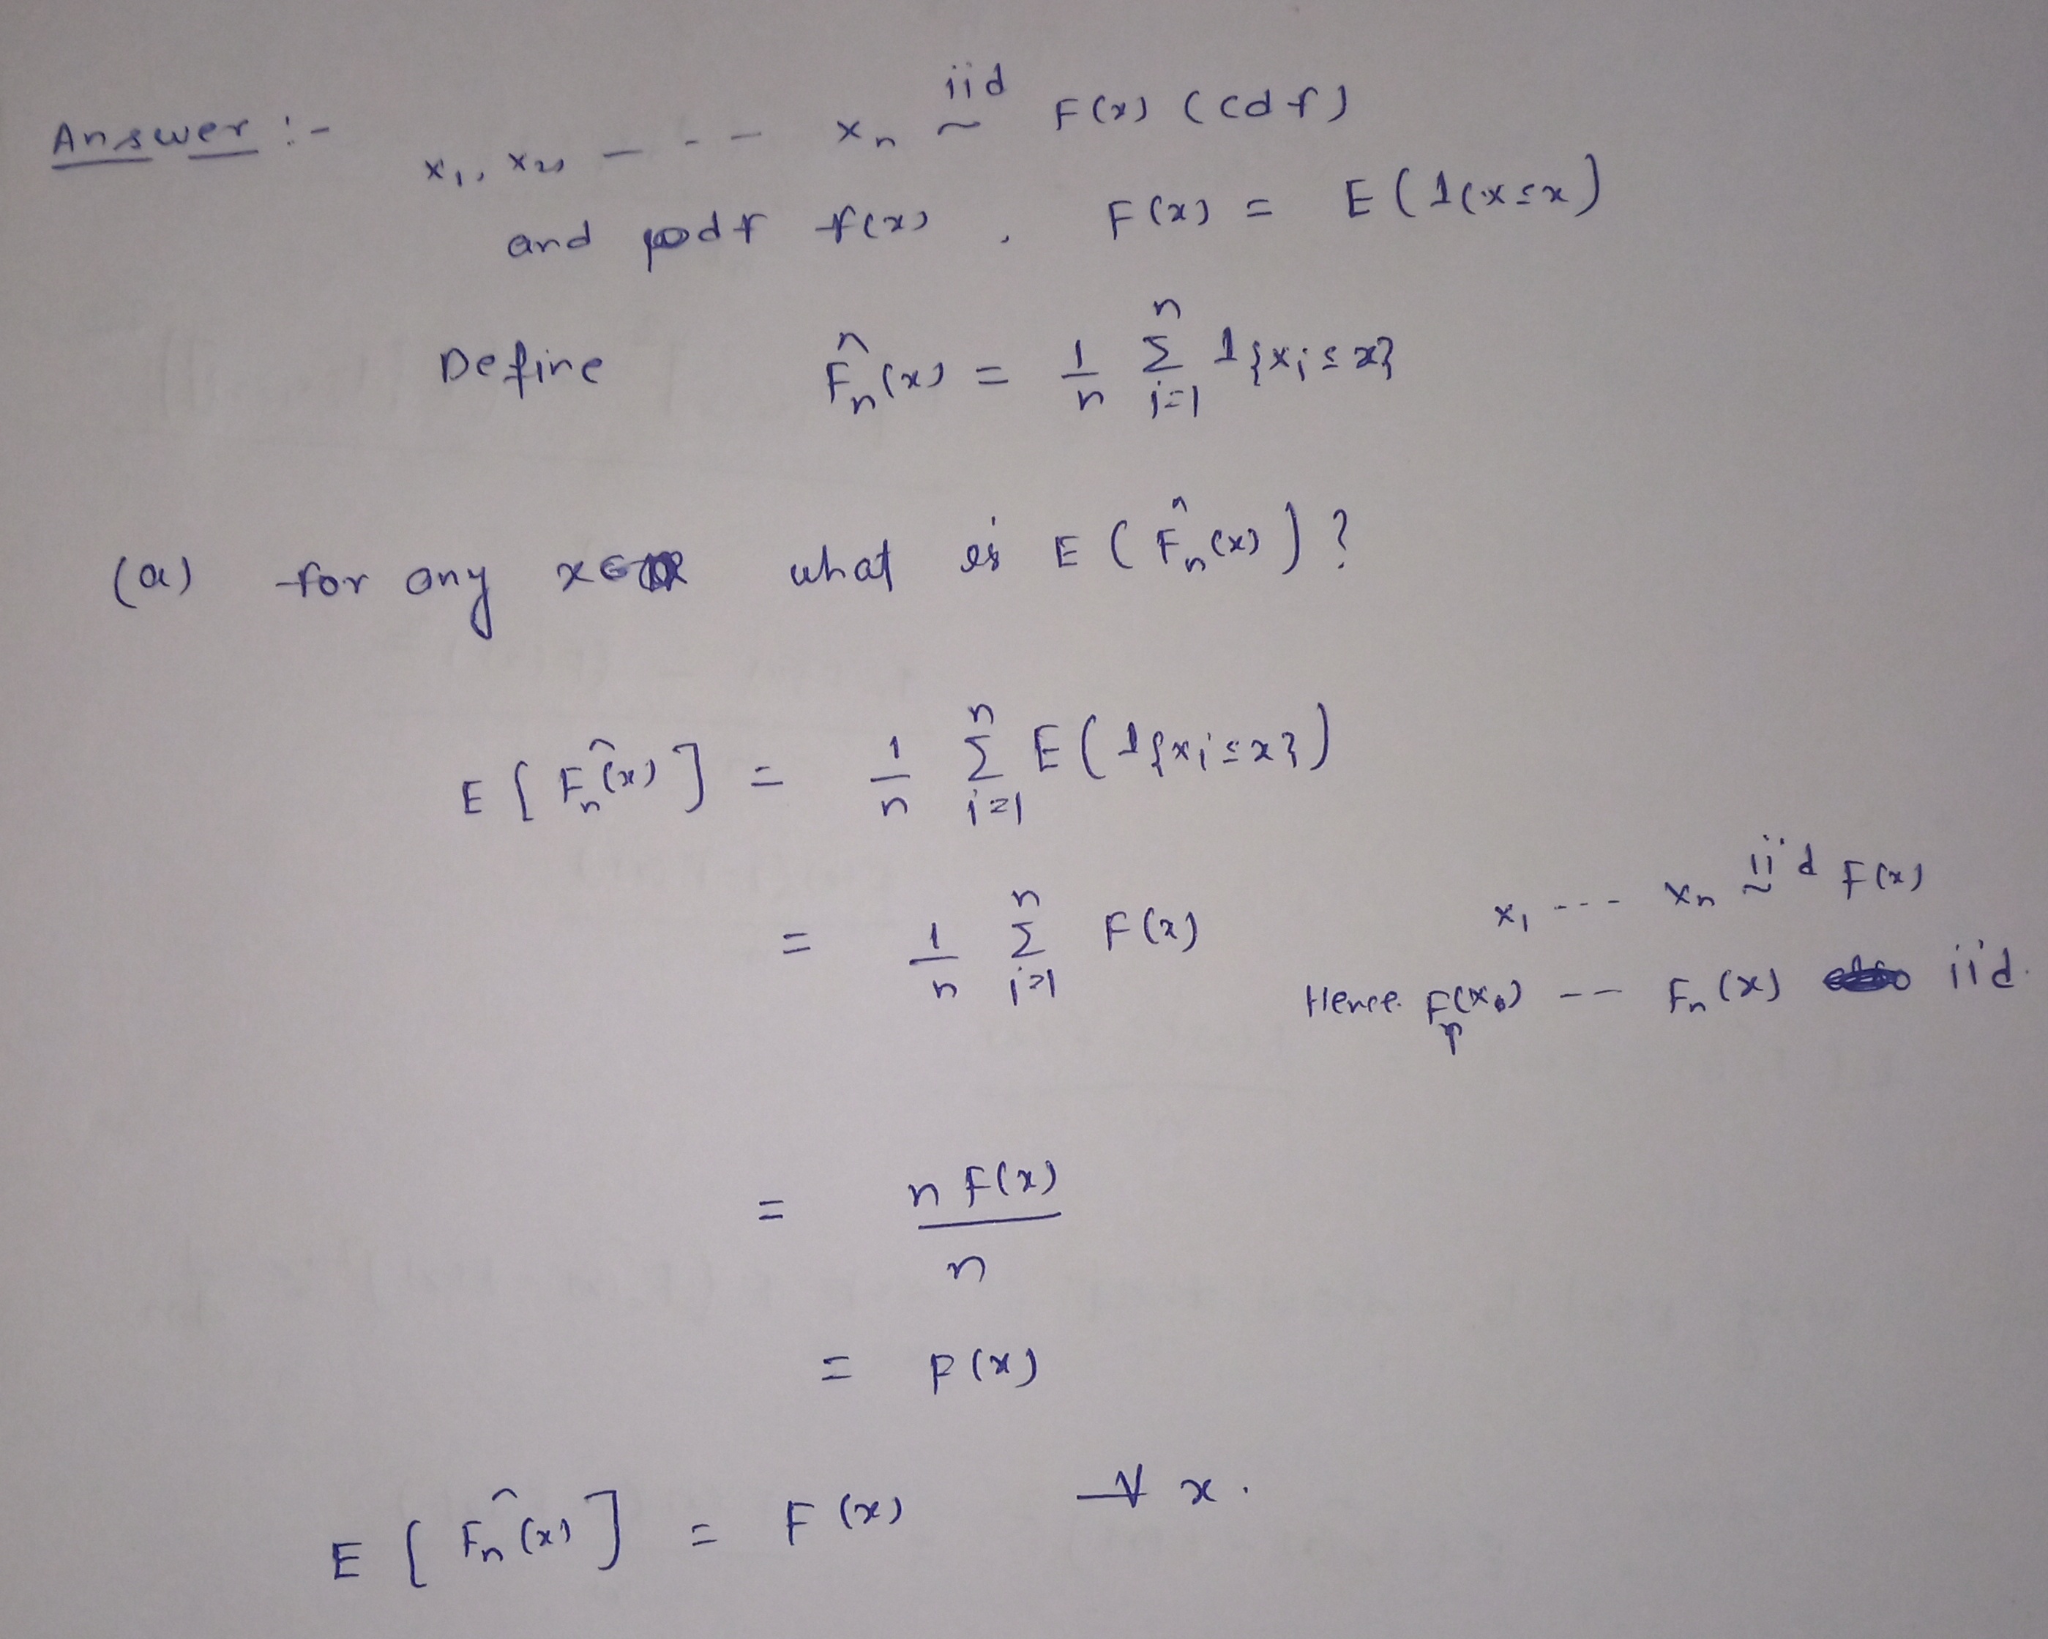 Answer :- x₁, x₂, — - - - xₙ iid ~ F(x) (cdf)
and pdf f(x) , F(x) = E(1(x≤x)
Define F̂ₙ(x) = 1/n Σᵢ₌₁ⁿ 1{xᵢ≤x}
(a) for any x∈ℝ what is E(F̂ₙ(x))?
E[F̂ₙ(x)] = 1/n Σᵢ₌₁ⁿ E(1{xᵢ≤x})
= 1/n Σᵢ₌₁ⁿ F(x)
x₁ --- xₙ iid ~ F(x)
Hence -- Fₙ(x) iid.
= n F(x) / n
= F(x)
E[F̂ₙ(x)] = F(x) ∀ x.